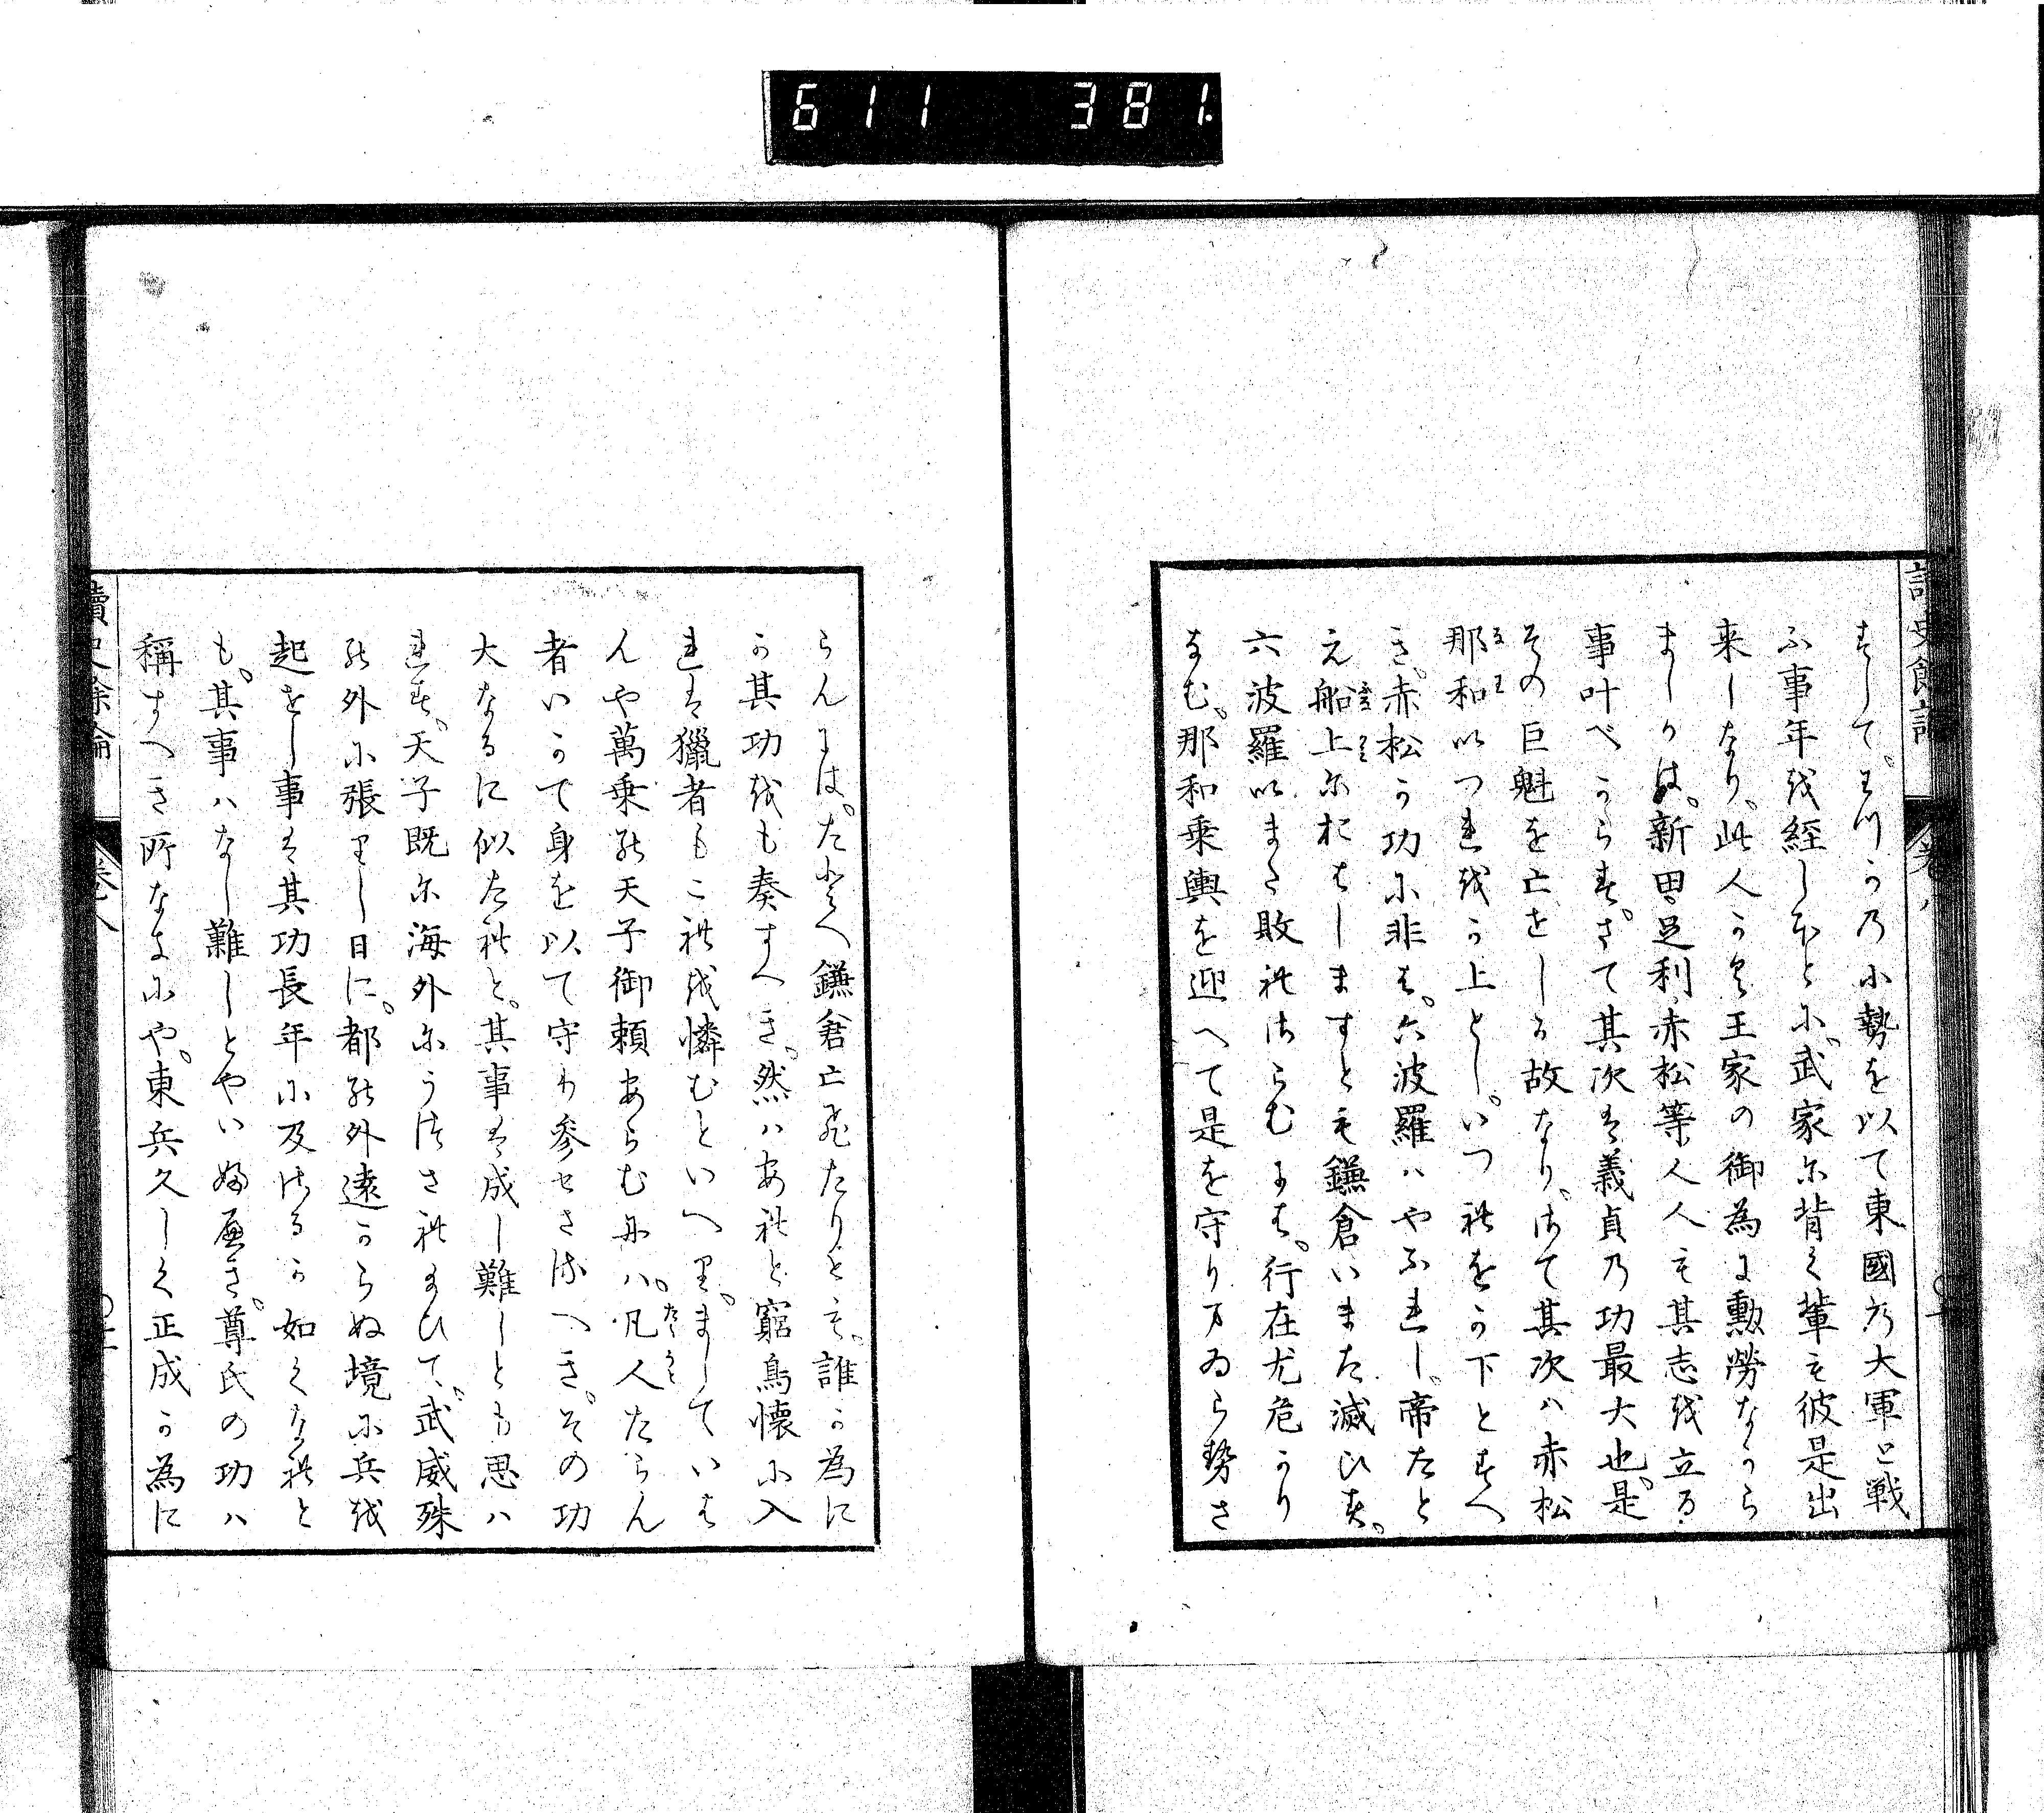 611 381.
讀史餘論 卷八
すして。わつかの小勢を以て東國の大軍と戦
ふ事年を経しほとに。武家に背く輩も彼是出
来しなり。此人かく王家の御為に勲勞なから
ましかは。新田。足利。赤松等人人も其志を立る
事叶べからす。さて其次は義貞乃功最大也。是
その巨魁を亡をしる故なり。さて其次ハ赤松
那和いつれをか上とし。いつれをか下とすへ
き。赤松か功に非は。六波羅ハやふれし。帝たと
え船上におはしますとも鎌倉いまた滅ひす。
六波羅いまた敗れさらむには。行在尤危かり
なむ。那和乗輿を迎へて是を守りまゐらせさ
らんには。たとへ鎌倉亡ひたりとも。誰か為に
か其功をも奏すへき。然ハあれと窮鳥懐に入
れは獵者もこれを憐むといへり。ましていは
んや萬乗の天子御頼あらむには。凡人たらん
者いかて身を以て守り参セさるへき。その功
大なるに似たれと。其事は成し難しとも思ハ
れす。天子既に海外にうつされ給ひて。武威殊
の外に張りし日に。都の外遠からぬ境に兵を
起をし事は其功長年に及さるか如くなれと
も。其事ハなし難しとやいふへき。尊氏の功ハ
稱すへき所なきにや。東兵久しく正成か為に
讀史餘論 卷八